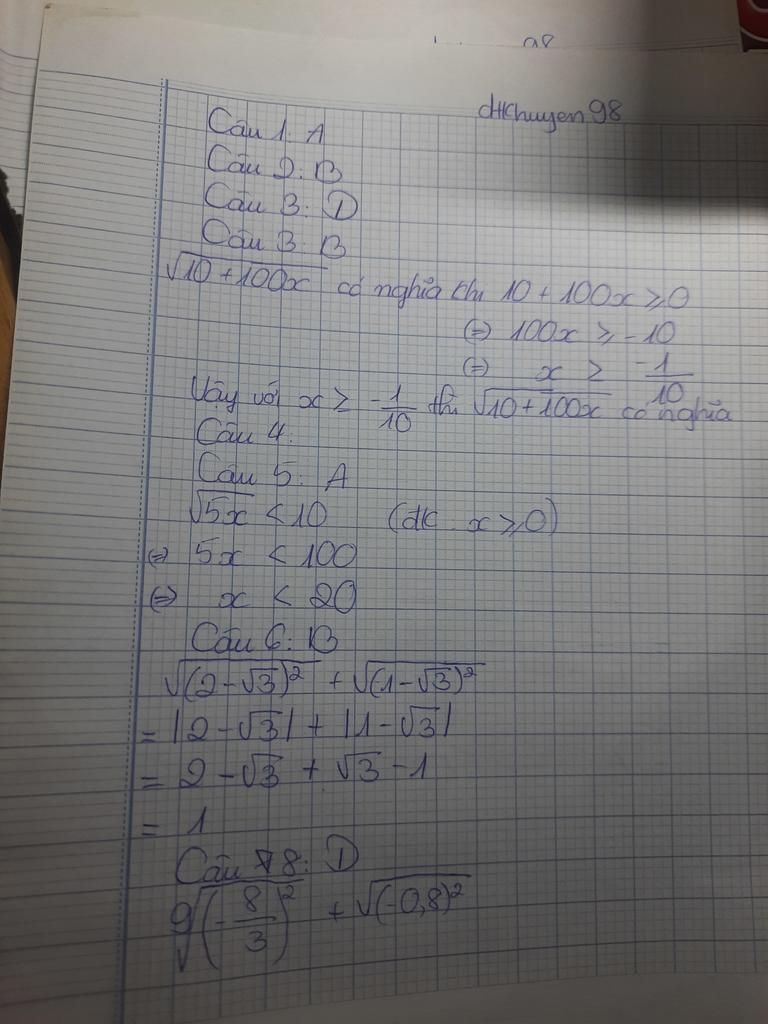 dtKhuyen98
Câu 1. A
Câu 2. B
Câu 3: D
Câu 3: B
√(10+100x) có nghĩa khi 10 + 100x ≥ 0
(=) 100x ≥ -10
(=) x ≥ -1/10
Vậy với x ≥ -1/10 thì √(10+100x) có nghĩa
Câu 4.
Câu 5: A
√(5x) < 10 (đk x ≥ 0)
(=) 5x < 100
(=) x < 20
Câu 6: B
√((2-√3)²) + √((1-√3)²)
= |2-√3| + |1-√3|
= 2-√3 + √3-1
= 1
Câu 8: D
9√((-8/3)²) + √((-0,8)²)